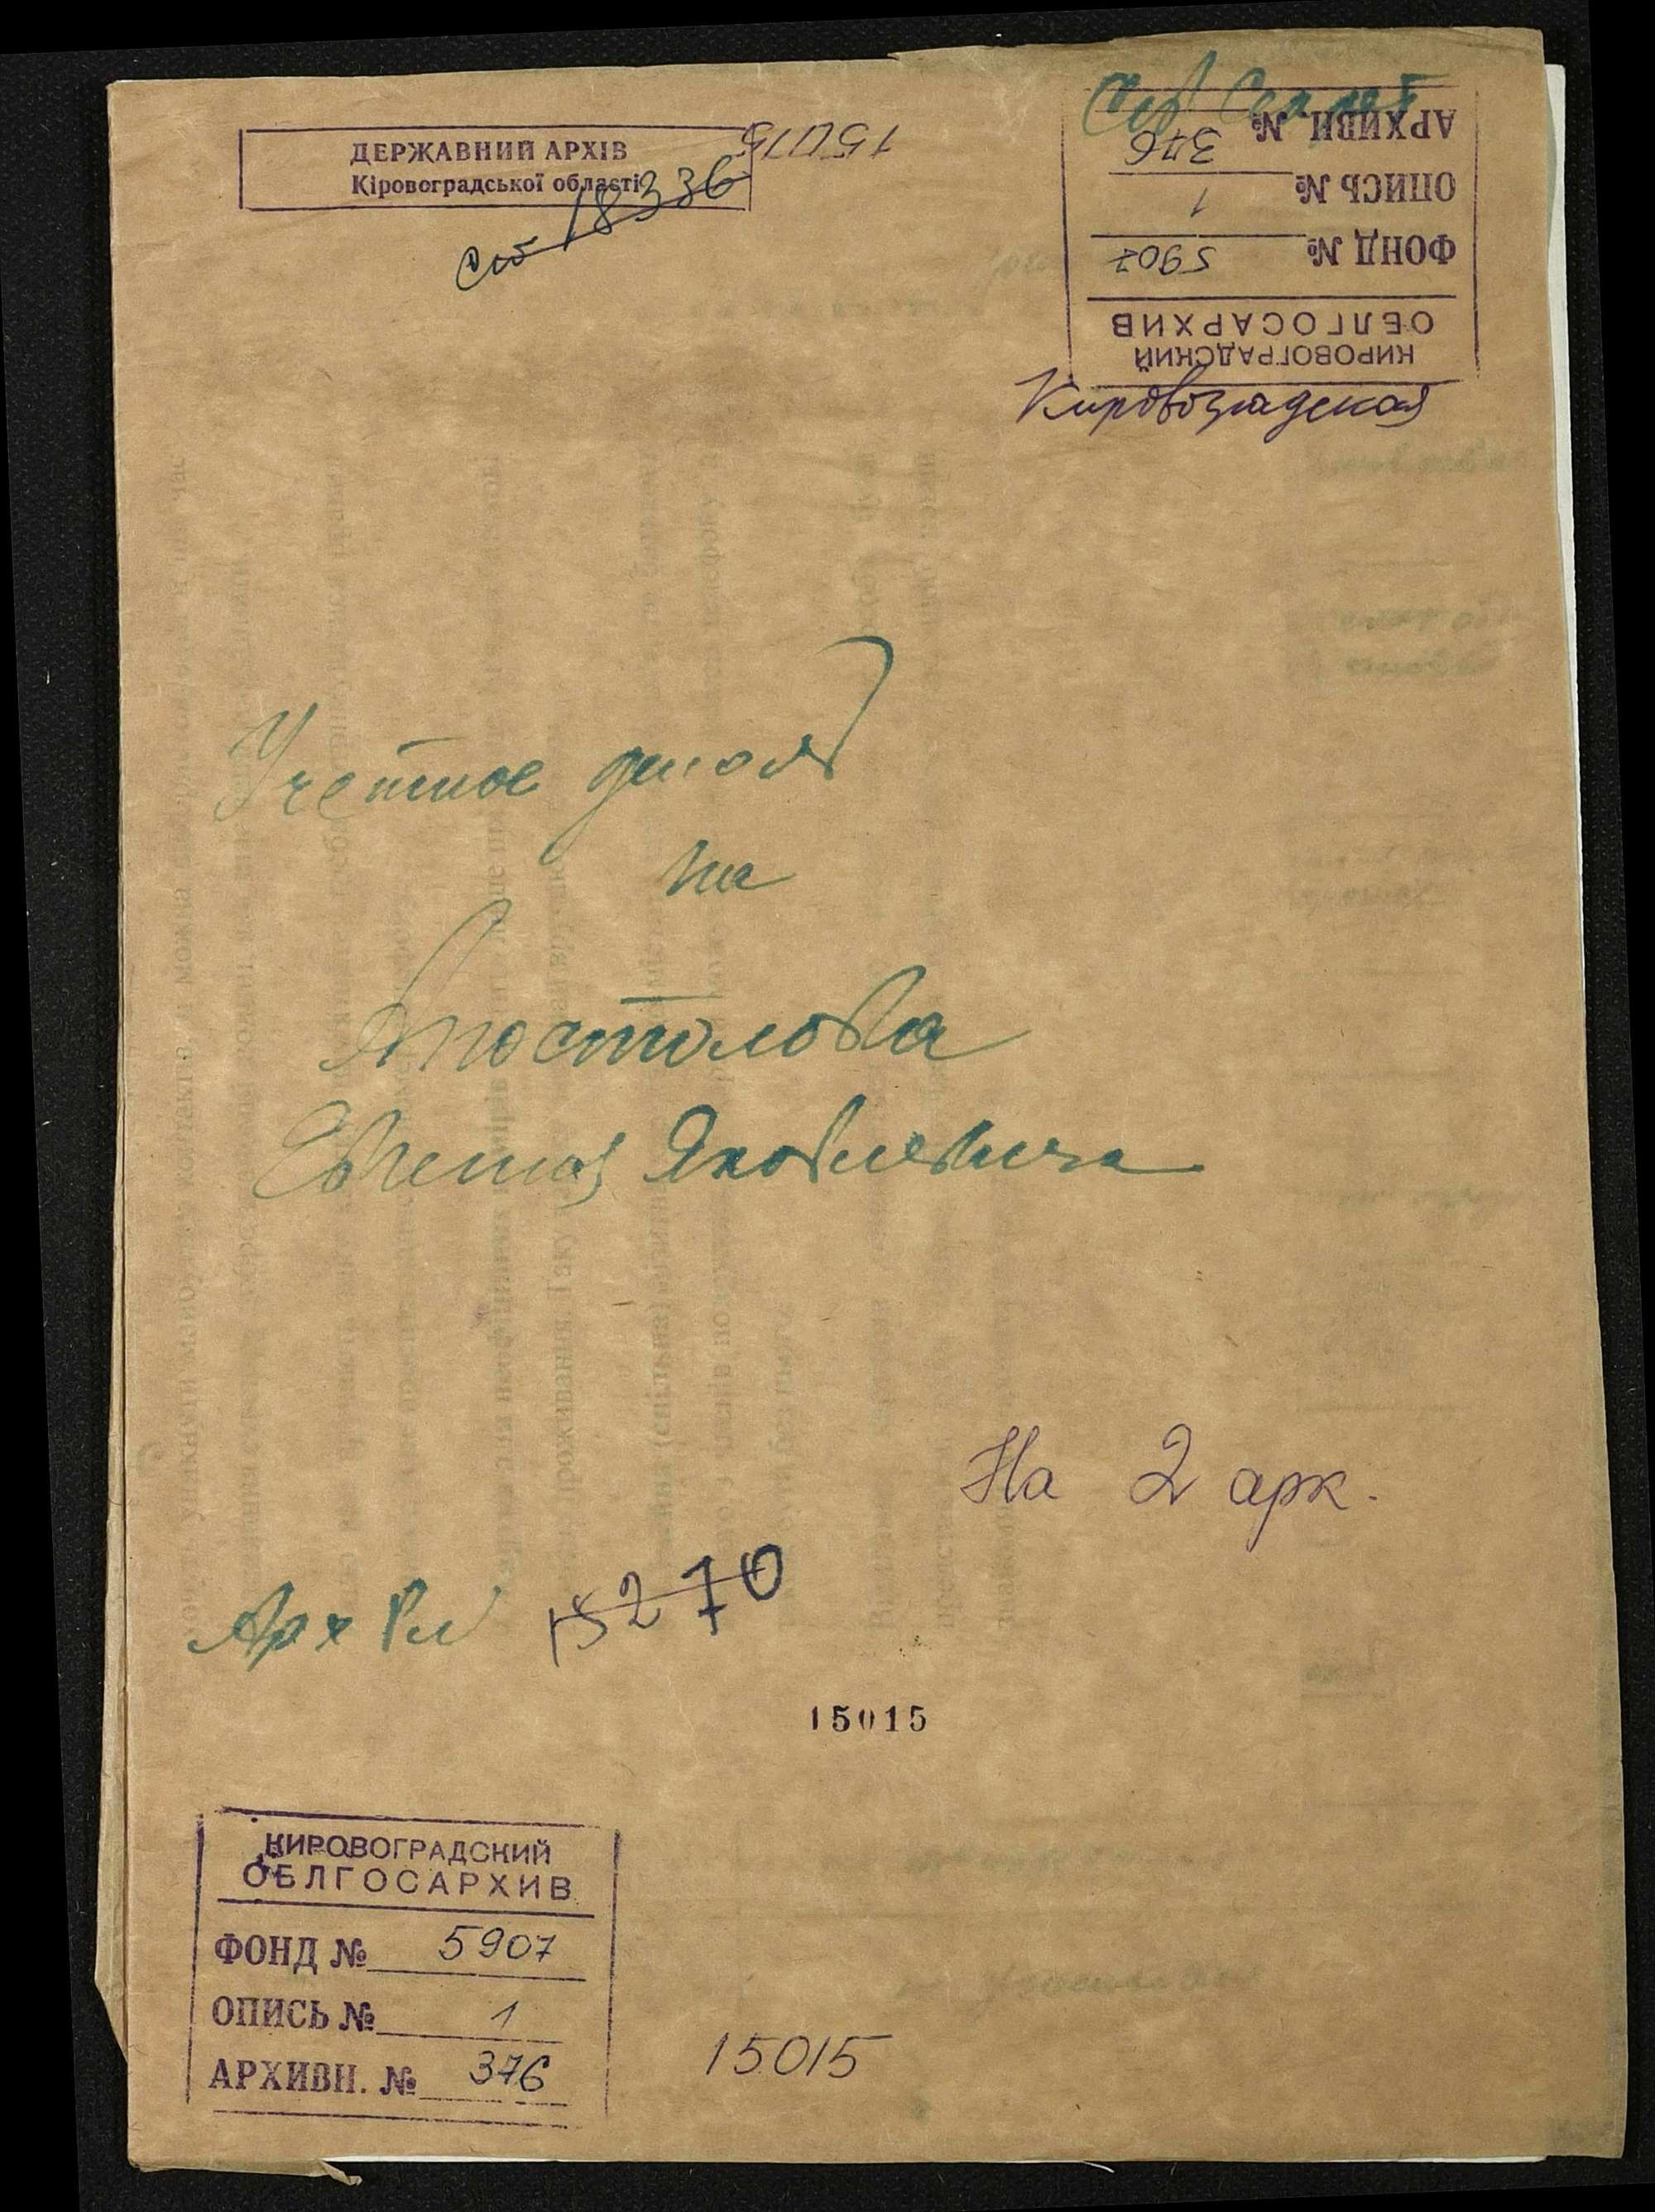 ДЕРЖАВНИЙ АРХІВ
Кіровоградської області
18336
15015
Сов Секрет
АРХИВН. № 376
ОПИСЬ № 1
ФОНД № 5907
КИРОВОГРАДСКИЙ
ОБЛГОСАРХИВ
Кировоградская
Учетное дело
на
Апостолова
Евгения Яковлевича
На 2 арк.
Арх 15270
15015
КИРОВОГРАДСКИЙ
ОБЛГОСАРХИВ
ФОНД № 5907
ОПИСЬ № 1
АРХИВН. № 376
15015